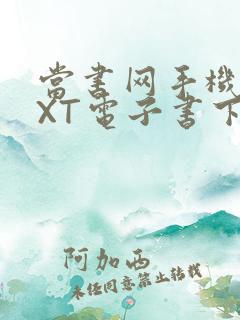 當書网手機
XT電子書下
阿加西
未经同意禁止转载